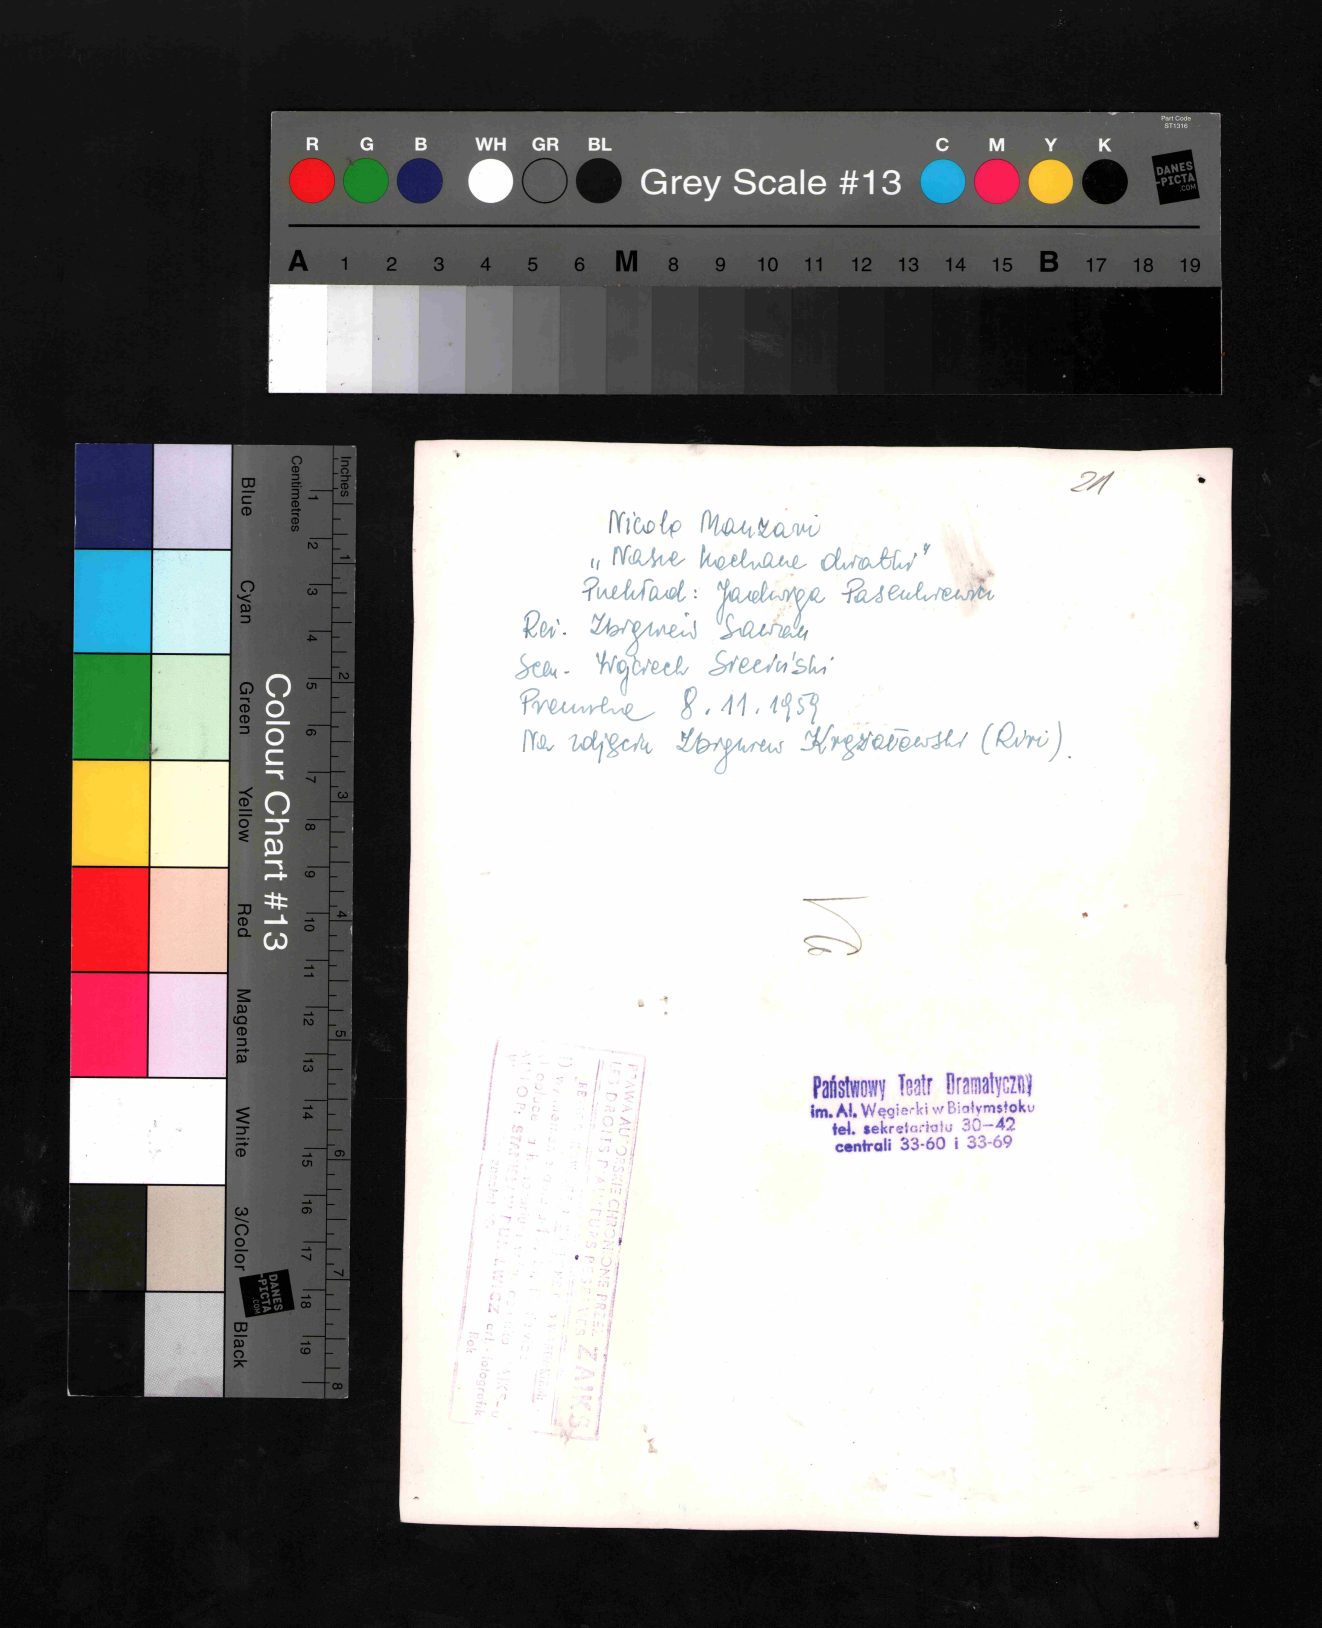 Part Code
ST1316
R G B WH GR BL Grey Scale #13 C M Y K
DANES
-PICTA
.COM
A 1 2 3 4 5 6 M 8 9 10 11 12 13 14 15 B 17 18 19
Colour Chart #13
Blue Cyan Green Yellow Red Magenta White 3/Color Black
Centimetres 1 2 3 4 5 6 7 8 9 10 11 12 13 14 15 16 17 18 19
Inches 1 2 3 4 5 6 7 8
DANES
-PICTA
.COM
21
Nicolo Manzari
„Nasze kochane dziatki"
Przekład: Jadwiga Pasenkiewicz
Reż. Zbigniew Sawan
Scen. Wojciech Sieciński
Premiera 8.11.1959
Na zdjęciu Zbigniew Krężałowski (Riri).
Państwowy Teatr Dramatyczny
im. Al. Węgierki w Białymstoku
tel. sekretariatu 30-42
centrali 33-60 i 33-69
PRAWA AUTORSKIE CHRONIONE PRZEZ
LES DROITS D'AUTEURS RESERVES ZAIKS
art. fotografik